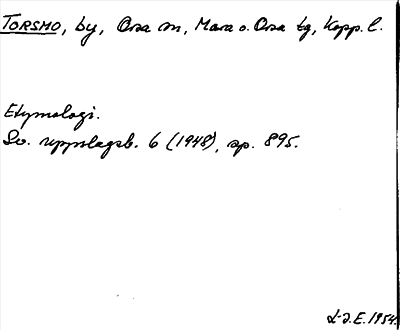 TORSMO, by, Orsa sn, Mora o. Orsa tg, Kopp. l.
Etymologi.
Sv. uppslagsb. 6 (1948), sp. 895.
L-J.E. 1954.